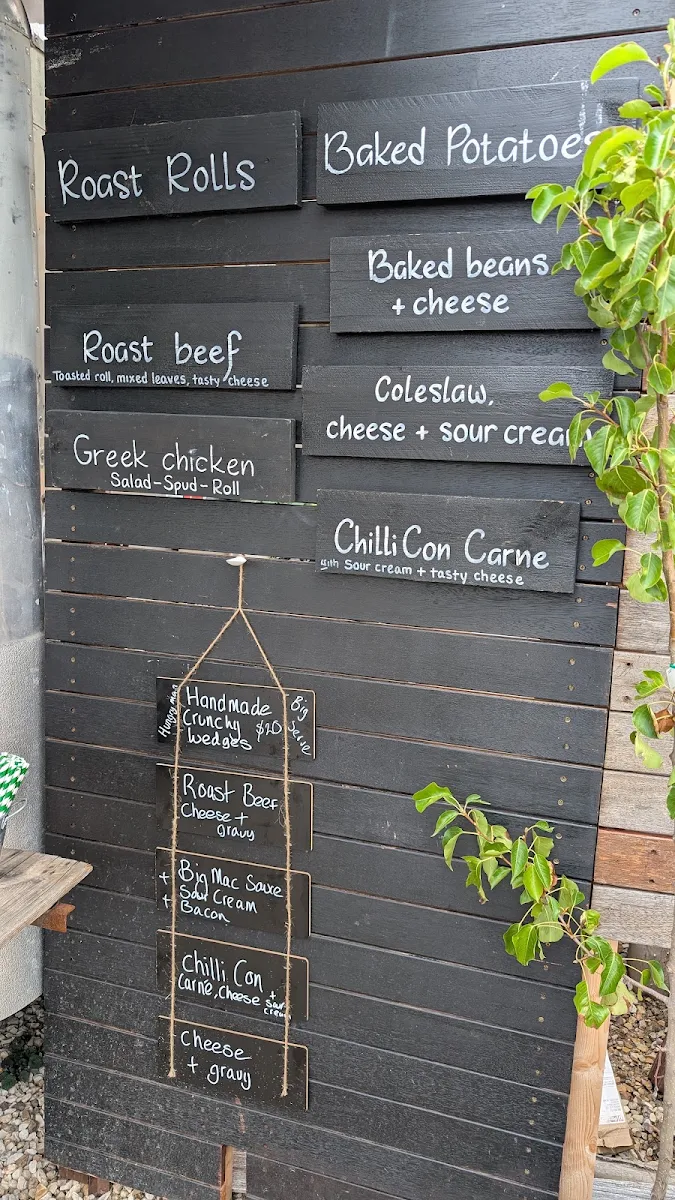 Roast Rolls
Roast beef
Toasted roll, mixed leaves, tasty cheese
Greek chicken
Salad-Spud-Roll
Baked Potatoes
Baked beans
+ cheese
Coleslaw,
cheese + sour cream
Chilli Con Carne
with Sour cream + tasty cheese
Hungry man
Handmade
Crunchy $20
Wedges
Big Serve
Roast Beef
Cheese +
gravy
+ Big Mac Sauce
Sour Cream
+ Bacon
Chilli Con
Carne, Cheese + Sour
cream
Cheese
+ gravy